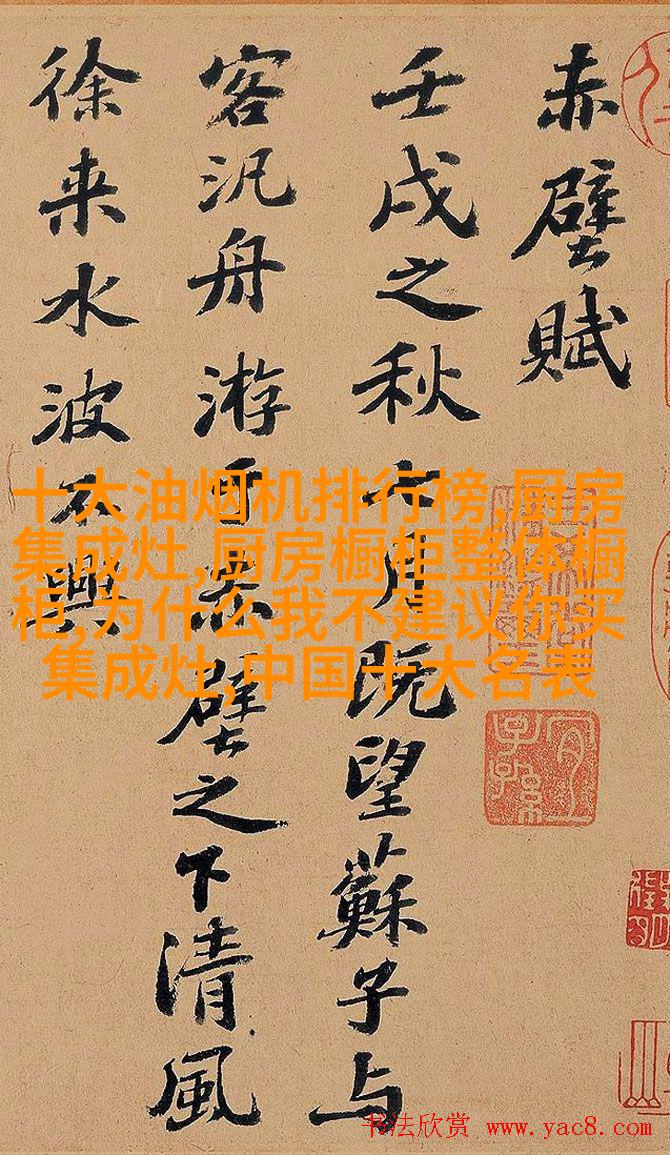 赤壁賦
壬戌之秋七月既望蘇子与
客汎舟游于赤壁之下清風
徐来水波不興
十大油烟机排行榜,厨房
集成灶,厨房橱柜整体橱
柜,为什么我不建议你买
集成灶,中国十大名表
书法欣赏 www.yac8.com